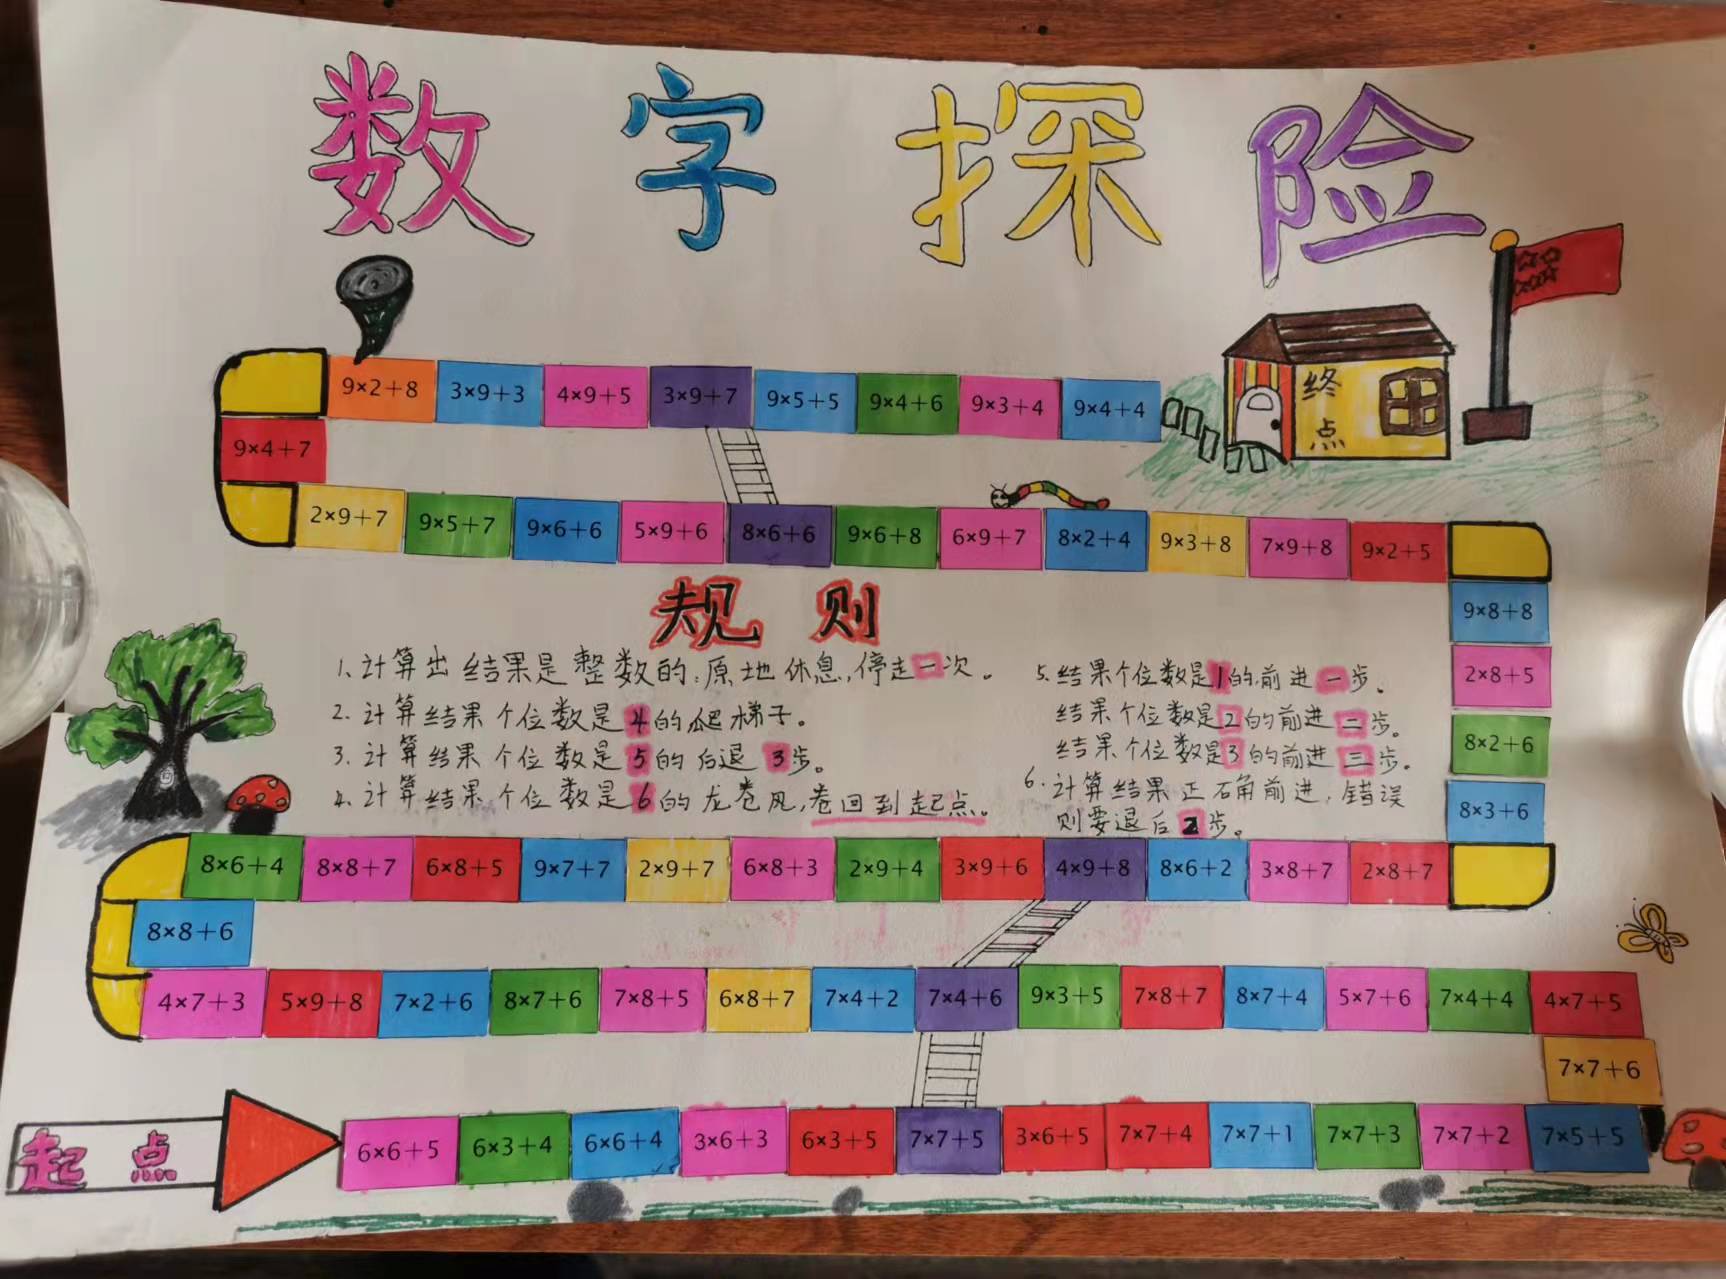 数字探险
9×2+8 3×9+3 4×9+5 3×9+7 9×5+5 9×4+6 9×3+4 9×4+4
终点
9×4+7
2×9+7 9×5+7 9×6+6 5×9+6 8×6+6 9×6+8 6×9+7 8×2+4 9×3+8 7×9+8 9×2+5
9×8+8
2×8+5
8×2+6
8×3+6
规则
1.计算出结果是整数的:原地休息,停走一次。
2.计算结果个位数是4的爬梯子。
3.计算结果个位数是5的后退3步。
4.计算结果个位数是6的龙卷风,卷回到起点。
5.结果个位数是1的,前进一步。
结果个位数是2的前进二步。
结果个位数是3的前进三步。
6.计算结果正石角前进,错误
则要退后2步。
8×6+4 8×8+7 6×8+5 9×7+7 2×9+7 6×8+3 2×9+4 3×9+6 4×9+8 8×6+2 3×8+7 2×8+7
8×8+6
4×7+3 5×9+8 7×2+6 8×7+6 7×8+5 6×8+7 7×4+2 7×4+6 9×3+5 7×8+7 8×7+4 5×7+6 7×4+4 4×7+5
7×7+6
起点
6×6+5 6×3+4 6×6+4 3×6+3 6×3+5 7×7+5 3×6+5 7×7+4 7×7+1 7×7+3 7×7+2 7×5+5